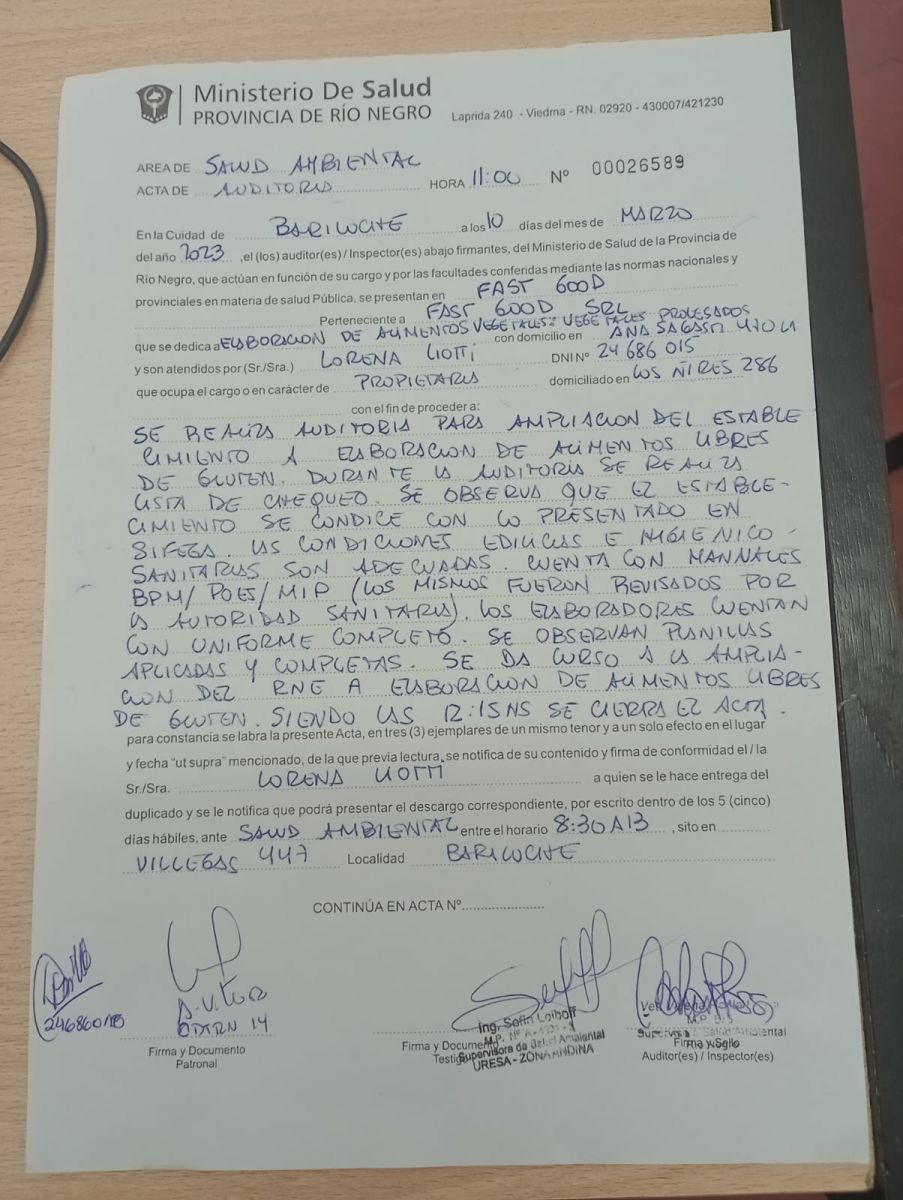 Ministerio De Salud
PROVINCIA DE RÍO NEGRO
Laprida 240 - Viedma - RN. 02920 - 430007/421230
AREA DE SALUD AMBIENTAL
ACTA DE AUDITORIA HORA 11:00 Nº 00026589
En la Cuidad de BARILOCHE a los 10 días del mes de MARZO
del año 2023 ,el (los) auditor(es) / Inspector(es) abajo firmantes, del Ministerio de Salud de la Provincia de
Río Negro, que actúan en función de su cargo y por las facultades conferidas mediante las normas nacionales y
provinciales en materia de salud Pública, se presentan en FAST GOOD
Perteneciente a FAST GOOD SRL
que se dedica a ELABORACION DE ALIMENTOS VEGETALES: VEGETALES PROCESADOS con domicilio en ANASAGASTI
y son atendidos por (Sr./Sra.) LORENA LIOTTI DNI Nº 24 686 015
que ocupa el cargo o en carácter de PROPIETARIA domiciliado en LOS ÑIRES 286
con el fin de proceder a:
SE REALIZA AUDITORIA PARA AMPLIACION DEL ESTABLE
CIMIENTO A ELABORACION DE ALIMENTOS LIBRES
DE GLUTEN. DURANTE LA AUDITORIA SE REALIZA
LISTA DE CHEQUEO. SE OBSERVA QUE EL ESTABLE-
CIMIENTO SE CONDICE CON LO PRESENTADO EN
SIFEGA. LAS CONDICIONES EDILICIAS E HIGIENICO-
SANITARIAS SON ADECUADAS. CUENTA CON MANUALES
BPM/POES/MIP (LOS MISMOS FUERON REVISADOS POR
LA AUTORIDAD SANITARIA). LOS ELABORADORES CUENTAN
CON UNIFORME COMPLETO. SE OBSERVAN PLANILLAS
APLICADAS Y COMPLETAS. SE DA CURSO A LA AMPLIA-
CION DEL RNE A ELABORACION DE ALIMENTOS LIBRES
DE GLUTEN. SIENDO LAS 12:15HS SE CIERRA EL ACTA.
para constancia se labra la presente Acta, en tres (3) ejemplares de un mismo tenor y a un solo efecto en el lugar
y fecha "ut supra" mencionado, de la que previa lectura, se notifica de su contenido y firma de conformidad el / la
Sr./Sra. LORENA LIOTTI a quien se le hace entrega del
duplicado y se le notifica que podrá presentar el descargo correspondiente, por escrito dentro de los 5 (cinco)
días hábiles, ante SALUD AMBIENTAL entre el horario 8:30 A 13 , sito en
VILLEGAS 447 Localidad BARILOCHE
CONTINÚA EN ACTA Nº
24686015
DDTRN 14
Firma y Documento
Patronal
Firma y Documento
Testigo
Ing. Sofia Loiboff
Supervisora de Salud Ambiental
URESA - ZONA ANDINA
Supervisora Salud Ambiental
Firma y Sello
Auditor(es) / Inspector(es)